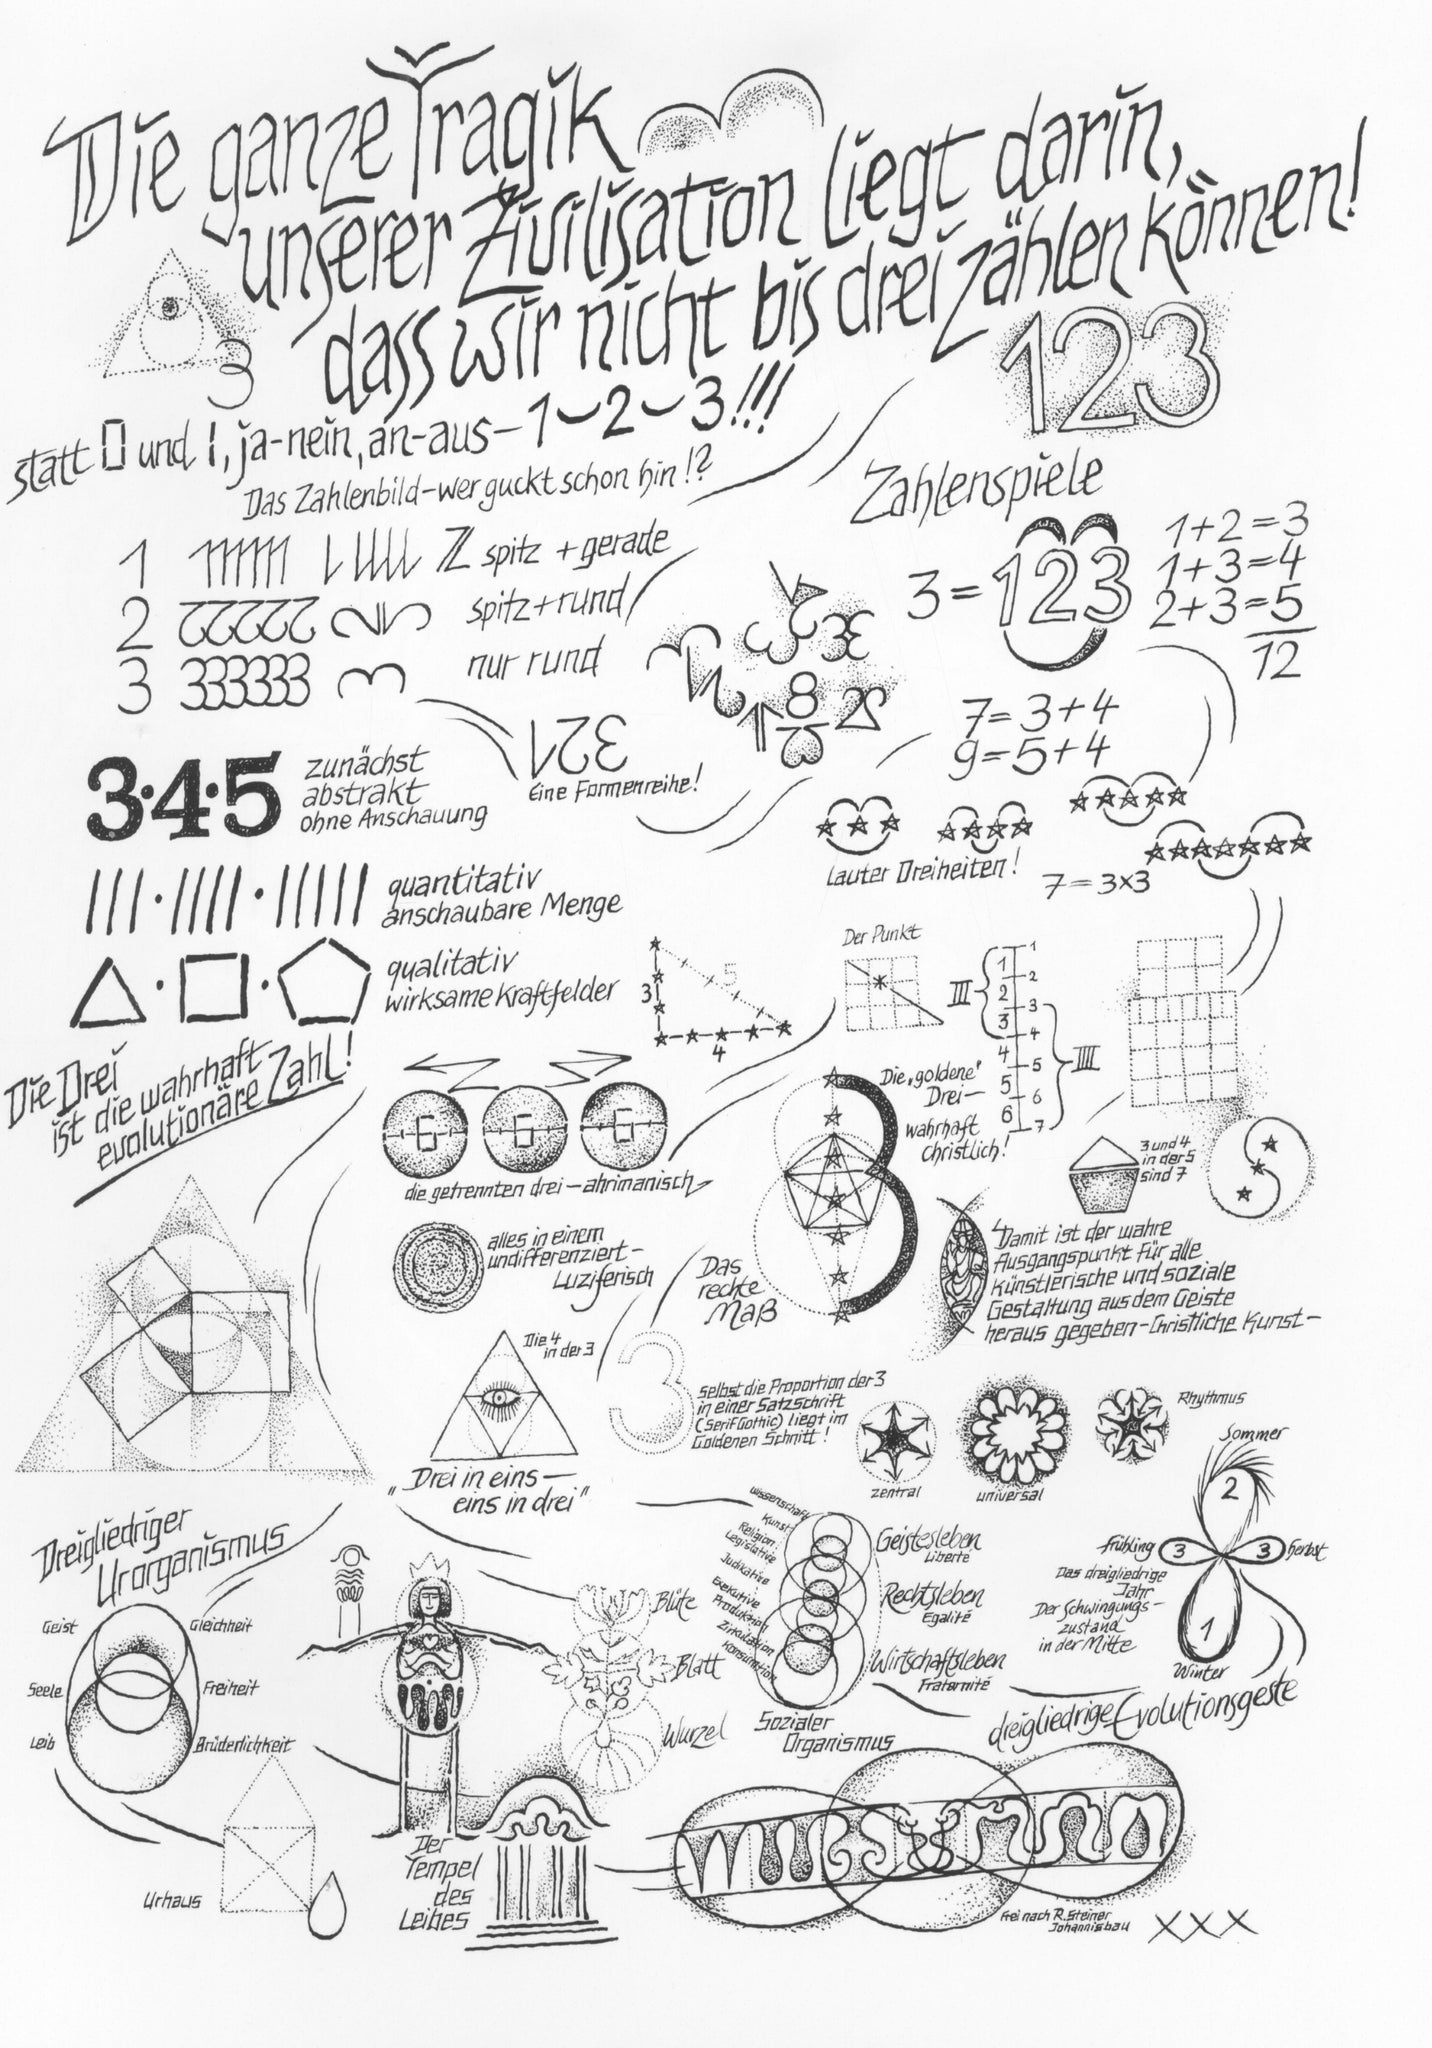 Die ganze Tragik
unserer Zivilisation liegt darin,
dass wir nicht bis drei zählen können!
3
123
statt 0 und 1, ja-nein, an-aus-1-2-3!!!
Das Zahlenbild-wer guckt schon hin!?
1 spitz + gerade
2 22222 spitz+rund
3 333333 nur rund
321
Eine Formenreihe!
Zahlenspiele
3 = 123
1+2=3
1+3=4
2+3=5
12
7=3+4
9=5+4
Lauter Dreiheiten!
7=3x3
3·4·5
zunächst
abstrakt
ohne Anschauung
quantitativ
anschaubare Menge
qualitativ
wirksame Kraftfelder
3
4
5
Der Punkt
III
1
2
3
4
5
6
1
2
3
4
5
6
7
IIII
Die Drei
ist die wahrhaft
evolutionäre Zahl!
6 6 6
die getrennten drei-ahrimanisch
alles in einem
undifferenziert-
Luziferisch
Die „goldene"
Drei-
wahrhaft
christlich!
3 und 4
in der 5
sind 7
Das
rechte
Maß
Damit ist der wahre
Ausgangspunkt für alle
künstlerische und soziale
Gestaltung aus dem Geiste
heraus gegeben-Christliche Kunst-
Die 4
in der 3
„Drei in eins-
eins in drei"
3
selbst die Proportion der 3
in einer Satzschrift
(Serif Gothic) liegt im
Goldenen Schnitt!
zentral
universal
Rhythmus
Sommer
2
Frühling 3
3 Herbst
1
Winter
Das dreigliedrige
Jahr
Der Schwingungs-
zustand
in der Mitte
Dreigliedriger
Urorganismus
Geist
Gleichheit
Seele
Freiheit
Leib
Brüderlichkeit
Urhaus
Der
Tempel
des
Leibes
Blüte
Blatt
Wurzel
Wissenschaft
Kunst
Religion
Legislative
Judikative
Exekutive
Produktion
Zirkulation
Konsumtion
Geistesleben
Liberté
Rechtsleben
Egalité
Wirtschaftsleben
Fraternité
Sozialer
Organismus
dreigliedrige Evolutionsgeste
frei nach R. Steiner
Johannisbau
XXX